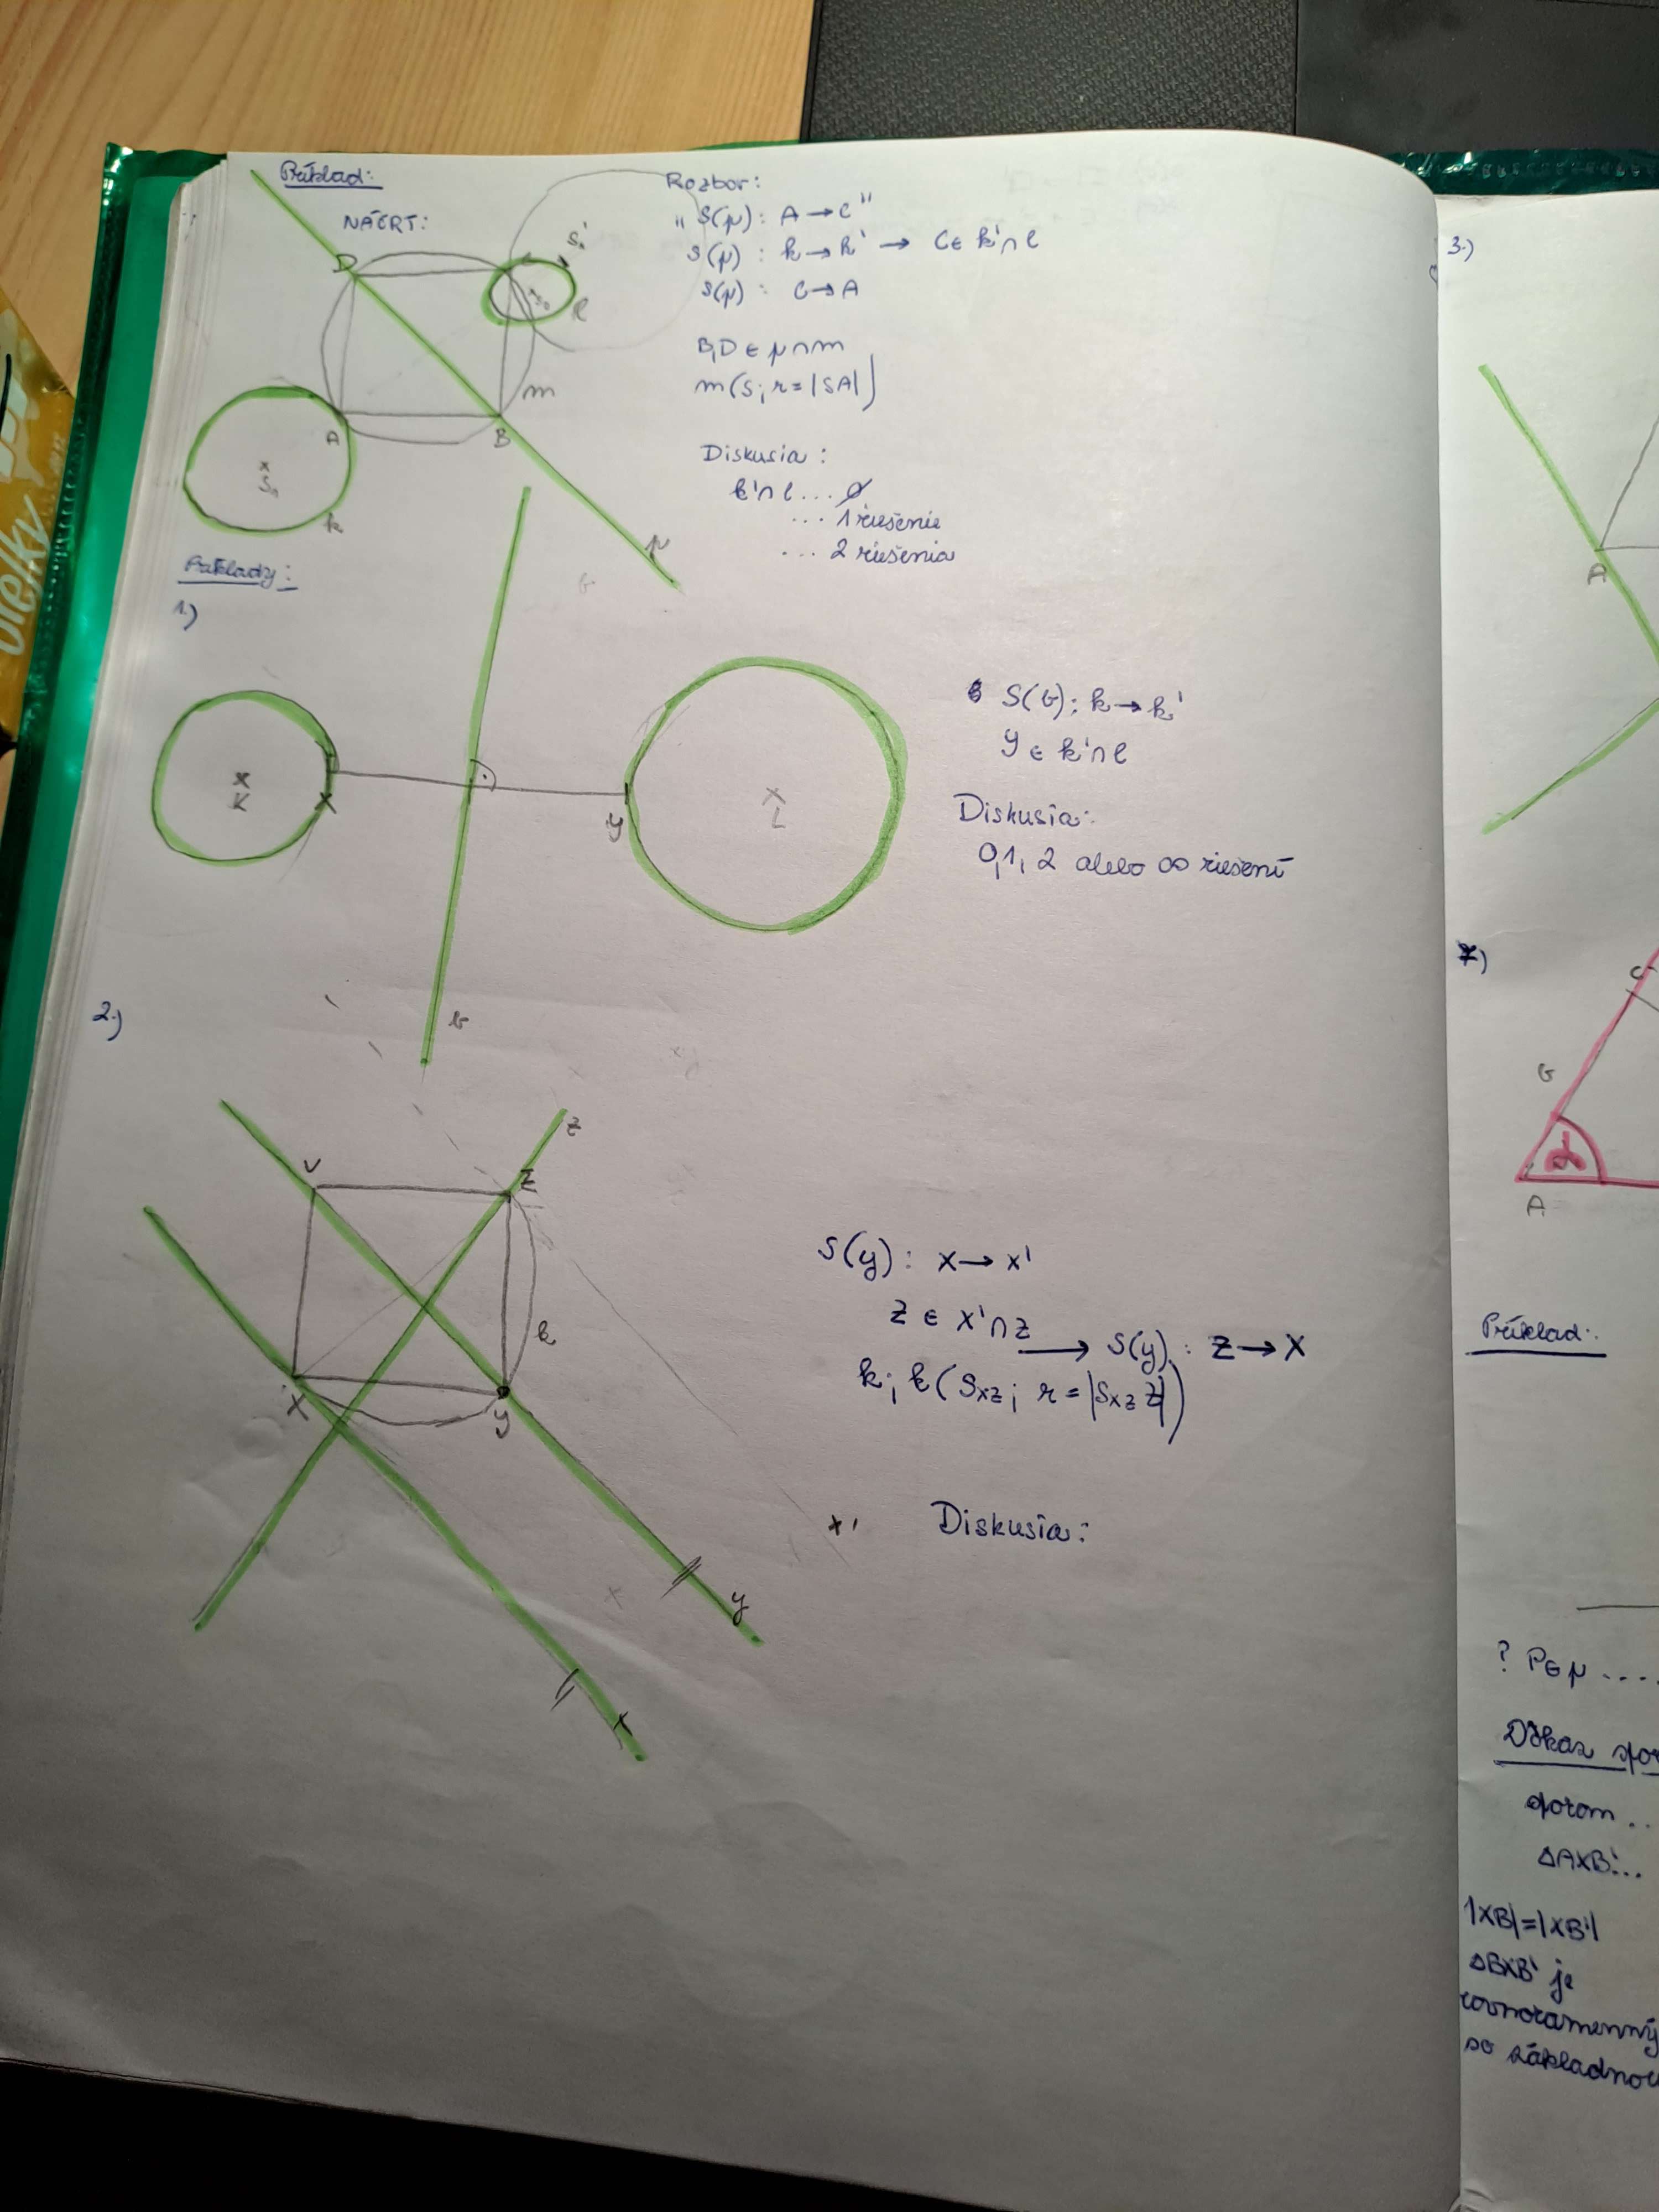 Príklad:
NÁČRT:
D
S₁'
l
m
A
B
S₁
k
p
Rozbor:
„ S(p): A → C "
S(p) : k → k' → C ∈ k'∩l
S(p) : C → A
B,D ∈ p∩m
m(S; r = |SA|)
Diskusia :
k'∩l ... ∅
... 1 riešenie
... 2 riešenia
Príklady:
1.)
K
X
y
L
b
S(b): k → k'
y ∈ k'∩l
Diskusia:
0,1, 2 alebo ∞ riešení
2.)
V
z
Z
k
X
y
y
x
S(y): x → x'
Z ∈ x'∩z → S(y): Z → X
k; k(S_XZ; r = |S_XZ Z|)
x'
Diskusia:
3.)
A
7)
C
b
A
Príklad:
? P∈p ....
Dôkaz
sporom ..
ΔAXB'...
|XB|=|XB'|
ΔBXB' je
rovnoramenný
so